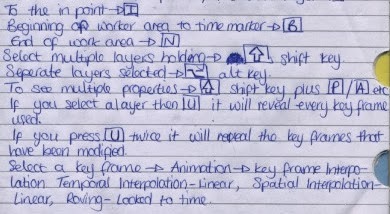 To the in point → I
Beginning of worker area to time marker → B
End of work area → N
Select multiple layers holding → ⇧ shift key
Seperate layers selected → ⌥ alt key
To see multiple properties → ⇧ shift key plus P / A etc
If you select a layer then U it will reveal every key frame
used.
If you press U twice it will reveal the key frames that
have been modified.
Select a key frame → Animation → key frame Interpo-
lation Temporal Interpolation - Linear, Spatial Interpolation -
Linear, Roving - Locked to time.